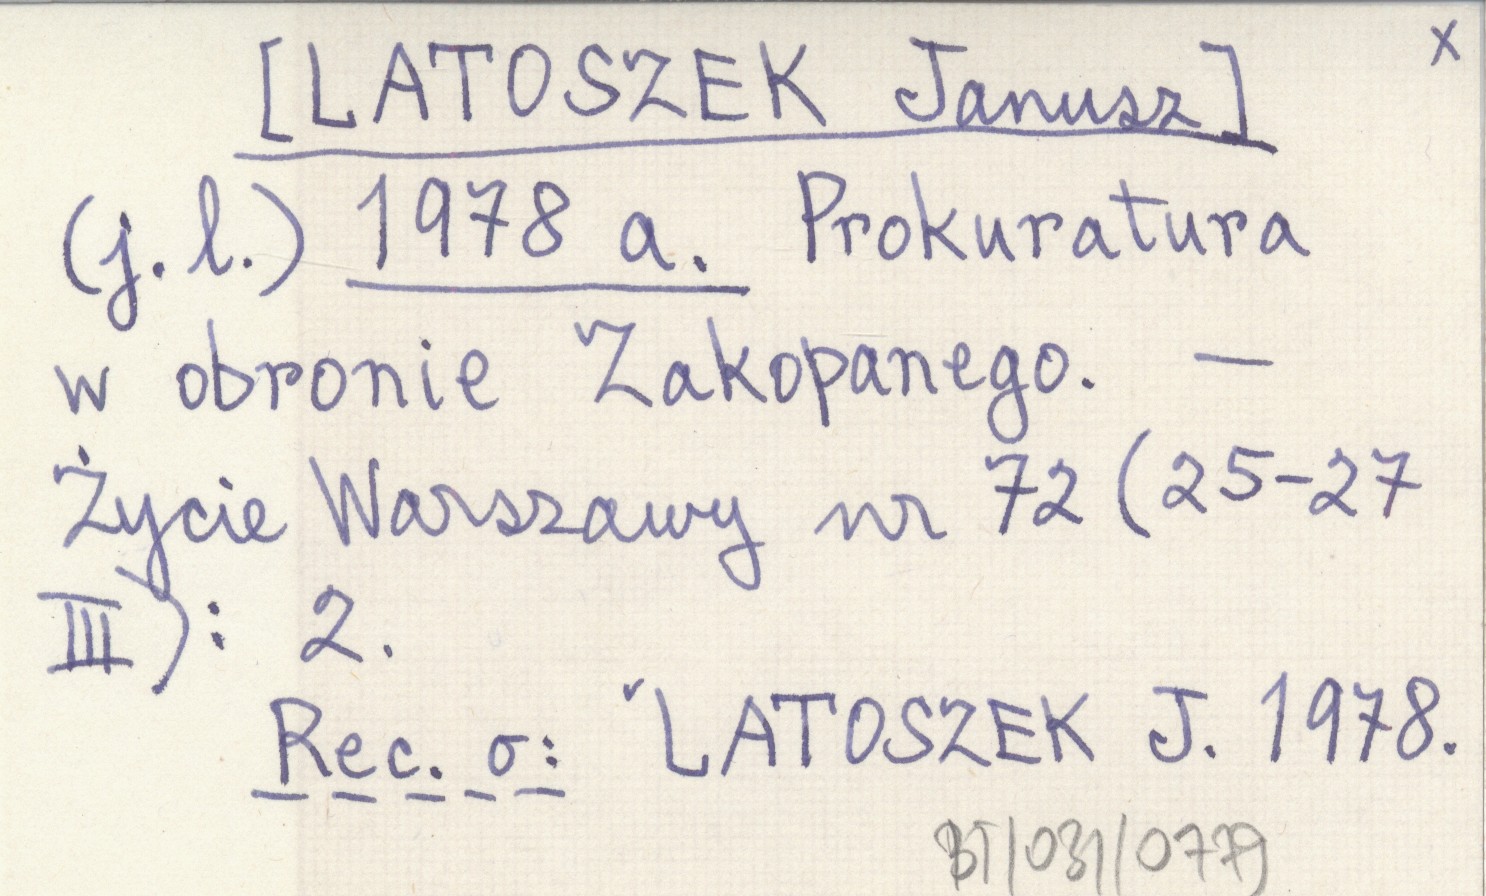 x
[LATOSZEK Janusz]
(j.l.) 1978 a. Prokuratura
w obronie Zakopanego. —
Życie Warszawy nr 72 (25-27
III): 2.
Rec. o: LATOSZEK J. 1978.
BT/031/0779